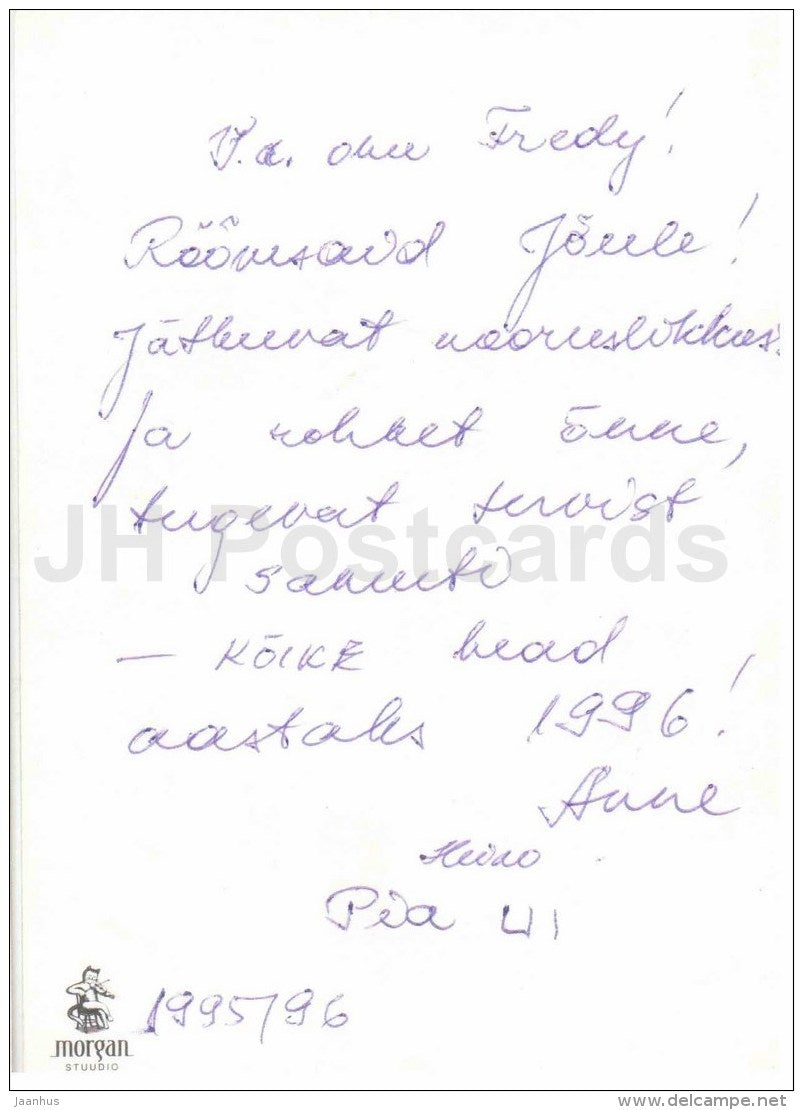 V.a. onu Fredy!
Rõõmsaid Jõule!
Jätkuvat nooruslikkust
ja rohket õnne,
tugevat tervist
samuti
— KÕIKE head
aastaks 1996!
Anne
Heino
Pia
1995/96
morgan
STUUDIO
JH Postcards
Jaanhus
www.delcampe.net